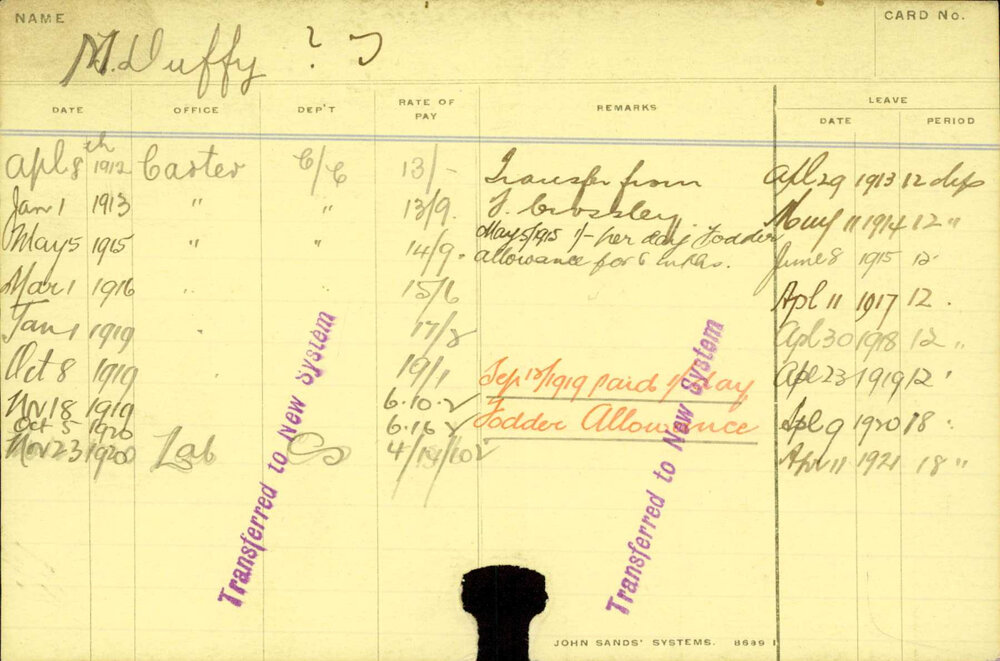 NAME
CARD No.
M. Duffy ?
DATE OFFICE DEP'T RATE OF PAY REMARKS LEAVE
DATE PERIOD
Apl 8th 1912 Carter C/C 13/- Transfer from Apl 29 1913 12 dys
Jan 1 1913 " " 13/9. J. Crossley. May 11 1914 12 "
May 5 1915 " " 14/9. May 5/1915 1/- per day Fodder June 8 1915 12
allowance for 6 mths.
Mar 1 1916 " " 15/6 Apl 11 1917 12
Jan 1 1919 " 17/8 Apl 30 1918 12 "
Oct 8 1919 " 19/1 Sep 12/1919 paid 1/- day Apl 23 1919 12 "
Nov 18 1919 6.10.2 Fodder Allowance Apl 9 1920 18 "
Oct 5 1920 6.16.2
Nov 23 1920 Lab 4/19/10 Apr 11 1921 18 "
Transferred to New System
Transferred to New System
JOHN SANDS' SYSTEMS. 8689